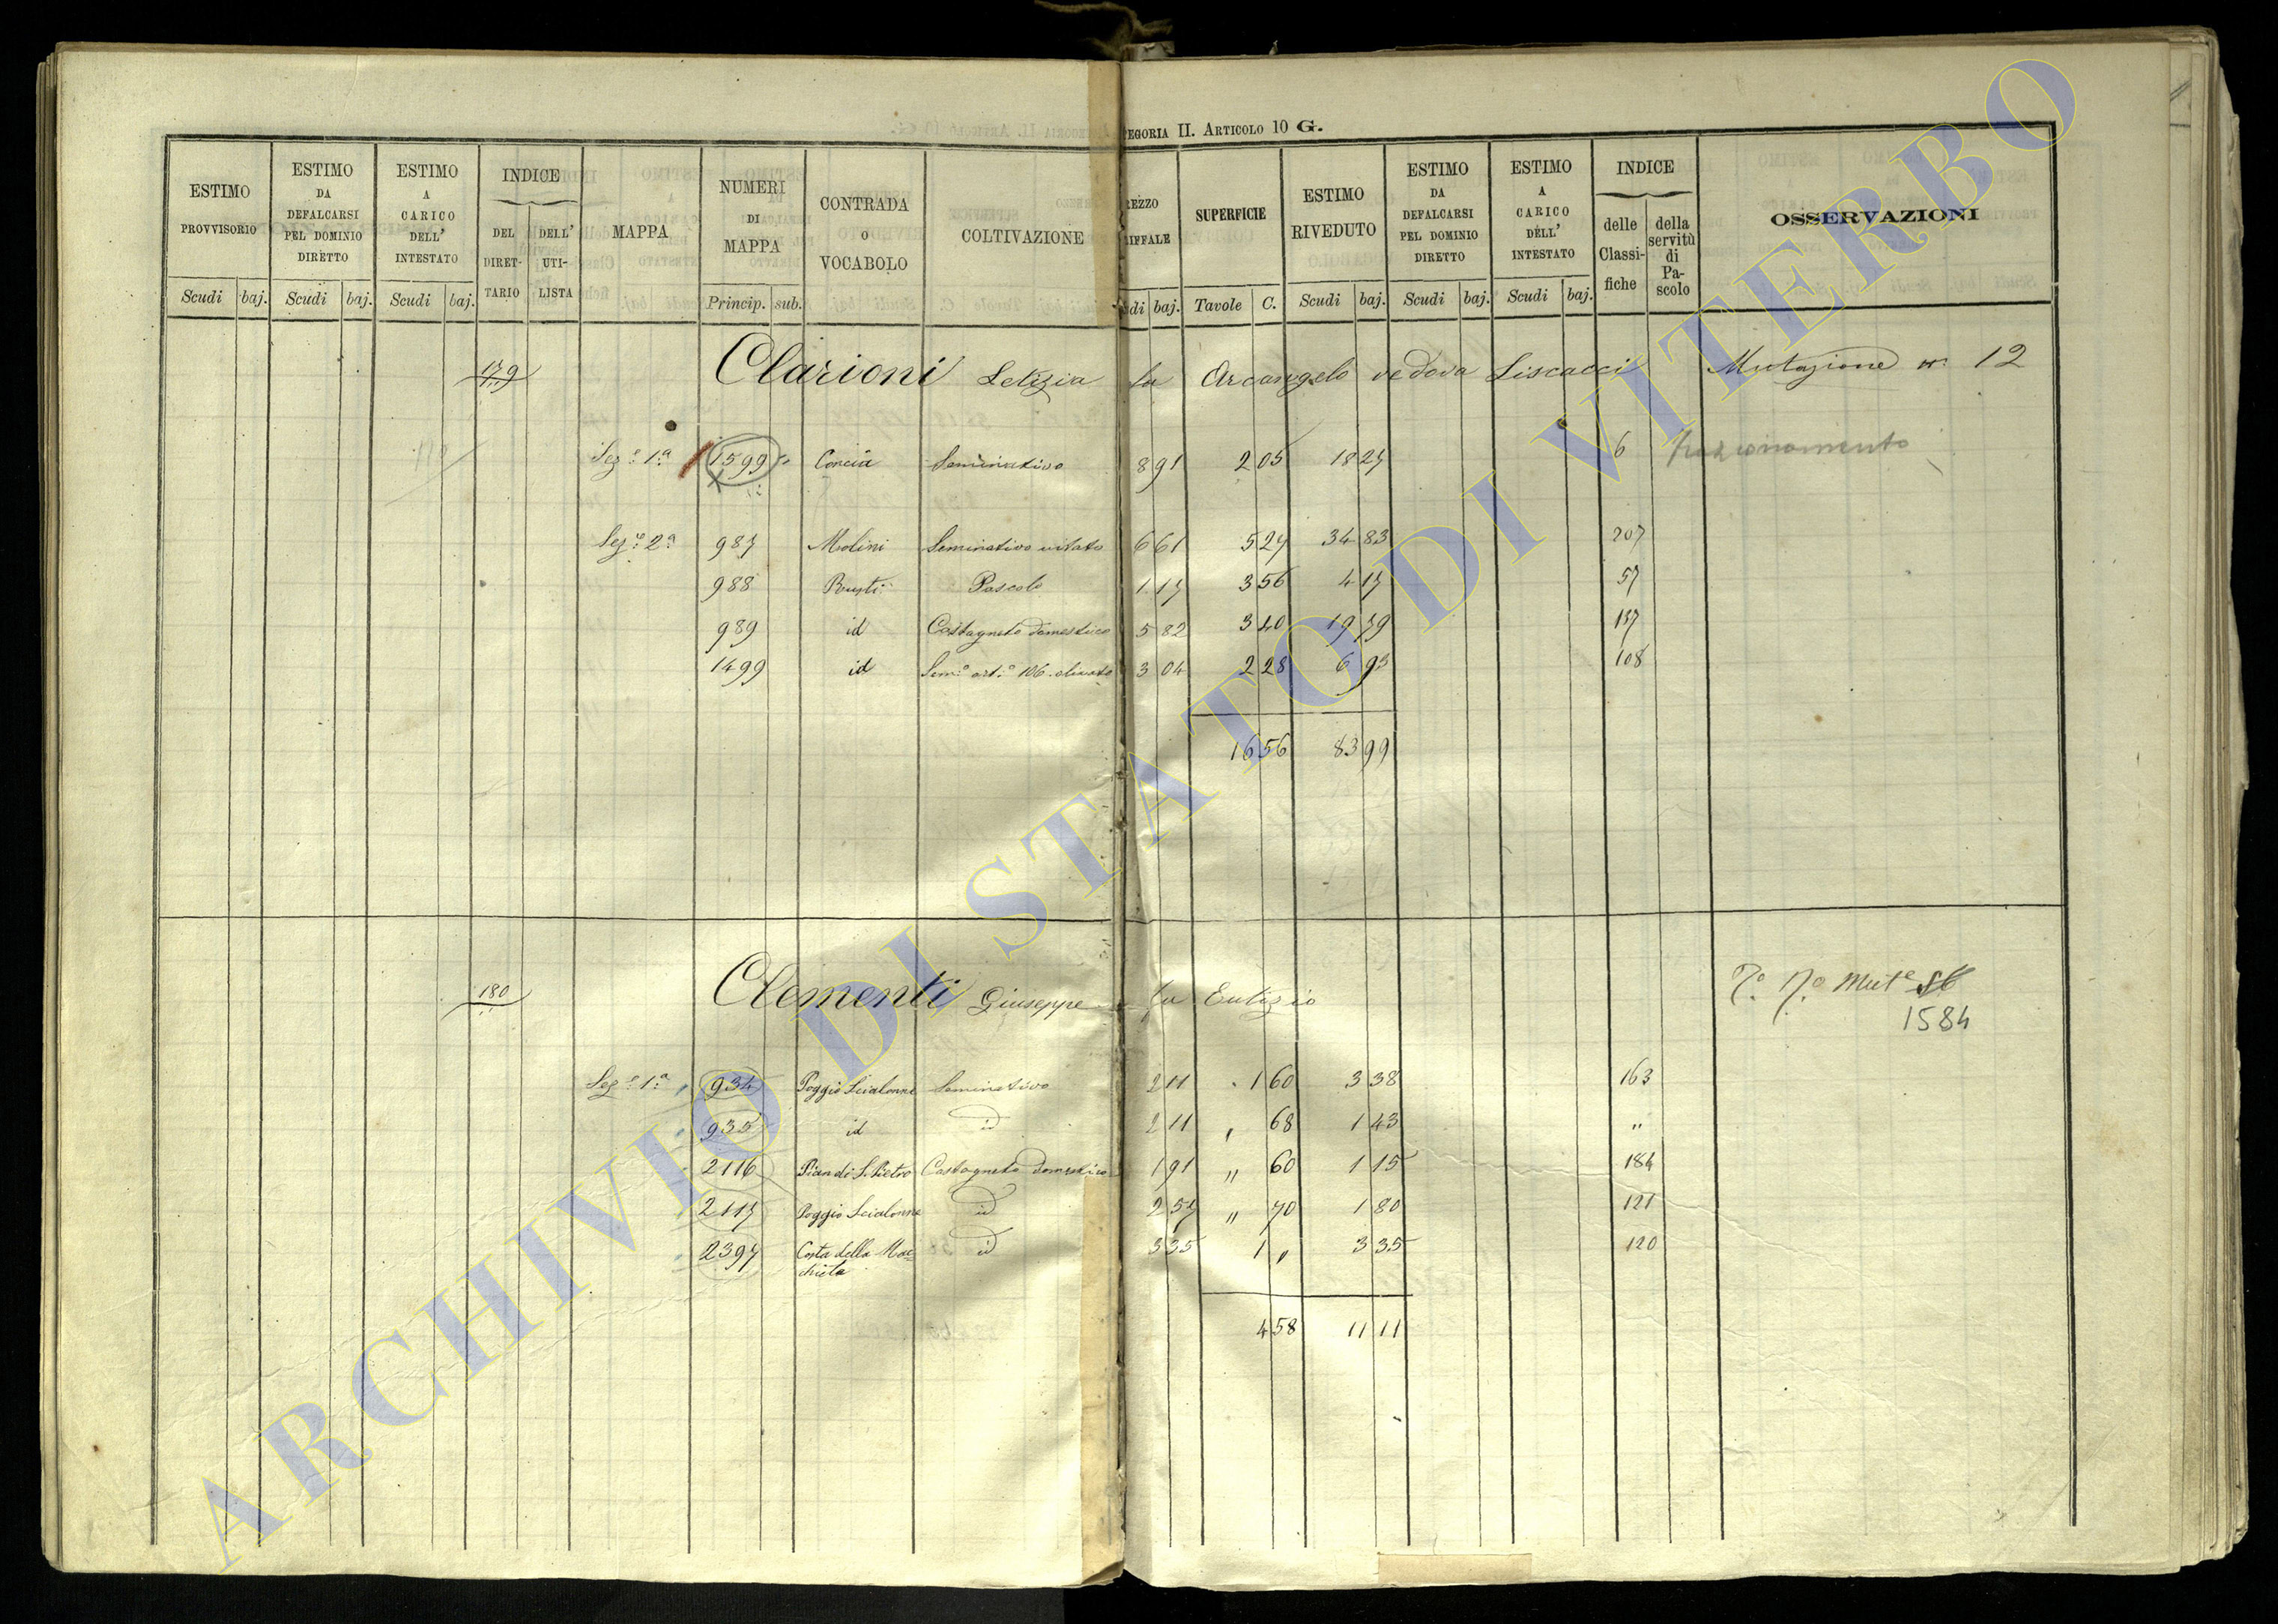 EGORIA II. ARTICOLO 10 G.
ESTIMO PROVVISORIO Scudi baj.
ESTIMO DA DEFALCARSI PEL DOMINIO DIRETTO Scudi baj.
ESTIMO A CARICO DELL' INTESTATO Scudi baj.
INDICE DEL DIRET-TARIO DELL' UTI-LISTA
MAPPA
NUMERI DI MAPPA Princip. sub.
CONTRADA O VOCABOLO
COLTIVAZIONE
REZZO RIFFALE di baj.
SUPERFICIE Tavole C.
ESTIMO RIVEDUTO Scudi baj.
ESTIMO DA DEFALCARSI PEL DOMINIO DIRETTO Scudi baj.
ESTIMO A CARICO DELL' INTESTATO Scudi baj.
INDICE delle Classi-fiche della servitù di Pa-scolo
OSSERVAZIONI
179 Clarioni Letizia fu Arcangelo vedova Liscacci Mutazione n. 12
Sez.e 1.a 1599 Concia Seminativo 8 91 2 05 18 27 6 frazionamento
Sez.e 2.a 987 Molini Seminativo vitato 6 61 5 27 34 83 207
988 Pascolo 1 17 3 56 4 17 57
989 id Castagneto domestico 5 82 3 40 19 79 137
1499 id Sem.o art.o 106 olivato 3 04 2 28 6 93 108
16 56 83 99
180 Clementi Giuseppe fu Eutizio Mut.e 56
1584
Sez.e 1.a 934 Poggio Scialonne Seminativo 2 11 1 60 3 38 163
935 id id 2 11 " 68 1 43 "
2116 Pian di S. Pietro Castagneto domestico 1 91 " 60 1 15 184
2117 Poggio Scialonne id 2 57 " 70 1 80 121
2397 Costa della Mac= id 3 35 1 " 3 35 120
chieta
4 58 11 11
ARCHIVIO DI STATO DI VITERBO